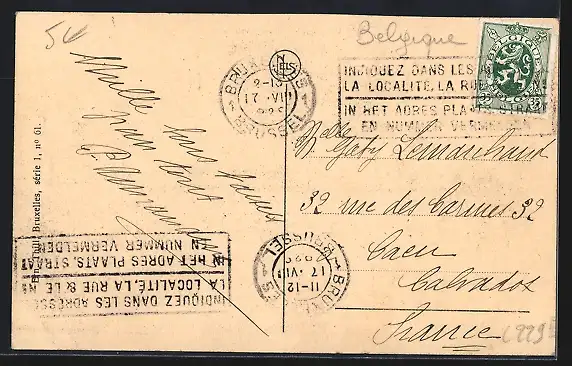 54
Belgique
NELS
BRUXELLES
BRUSSEL
17 · VII
INDIQUEZ DANS LES
LA LOCALITE, LA RUE
IN HET ADRES PLAATS, STRAAT
EN NUMMER VERMELDEN
BELGIQUE
Mille bons baisers
Melle Gaby Lemarchand
32 rue des Carmes 32
Caen
Calvados
France
Bruxelles, série 1, nº 61.
INDIQUEZ DANS LES ADRESSES
LA LOCALITÉ, LA RUE & LE Nº
IN HET ADRES PLAATS, STRAAT
EN NUMMER VERMELDEN
BRUSSEL
11-12
17 · VII
1929